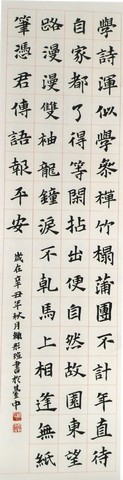 學詩渾似學叅禪竹榻蒲團不計年直待
自家都了得等閑拈出便自然故園東望
路漫漫雙袖龍鐘淚不乹馬上相逢無紙
筆憑君傳語報平安
歲在辛丑年秋月書於臺中